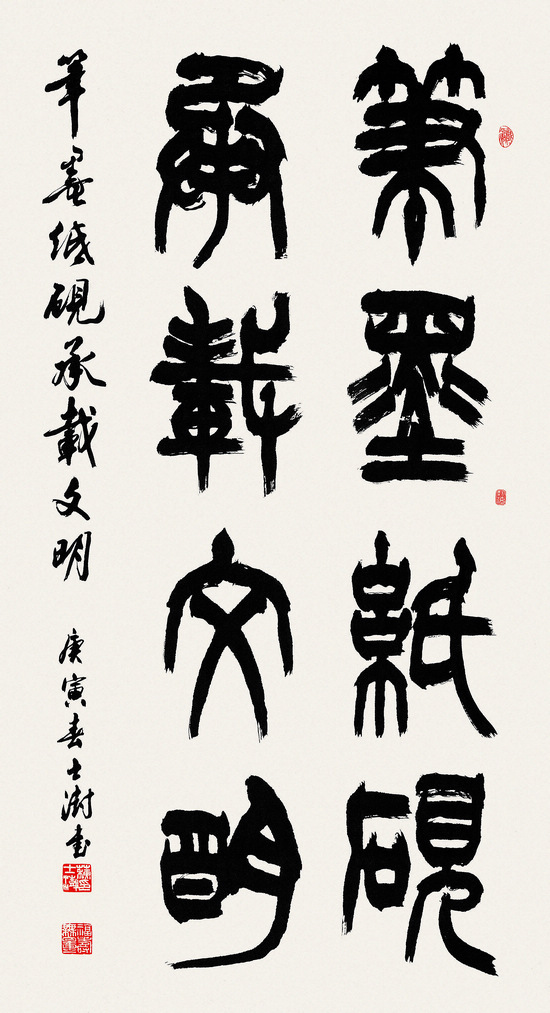 筆墨紙硯
承載文明
筆墨紙硯承載文明 庚寅春士澍書